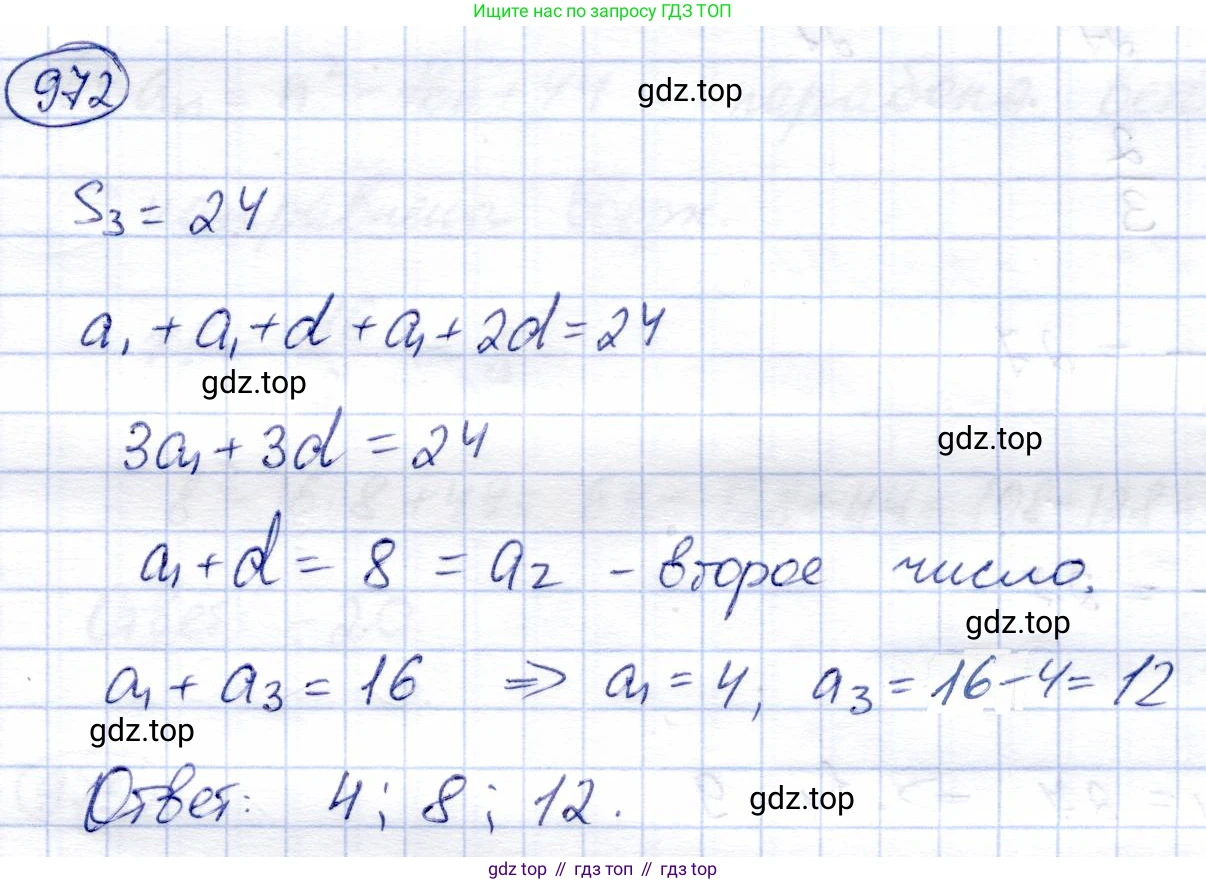 Ищите нас по запросу ГДЗ ТОП
972
gdz.top
S₃ = 24
a₁ + a₁ + d + a₁ + 2d = 24
gdz.top
3a₁ + 3d = 24
gdz.top
a₁ + d = 8 = a₂ - второе число.
gdz.top
a₁ + a₃ = 16 => a₁ = 4, a₃ = 16 - 4 = 12
gdz.top
Ответ: 4; 8; 12.
gdz.top
gdz.top // гдз топ // gdz.top